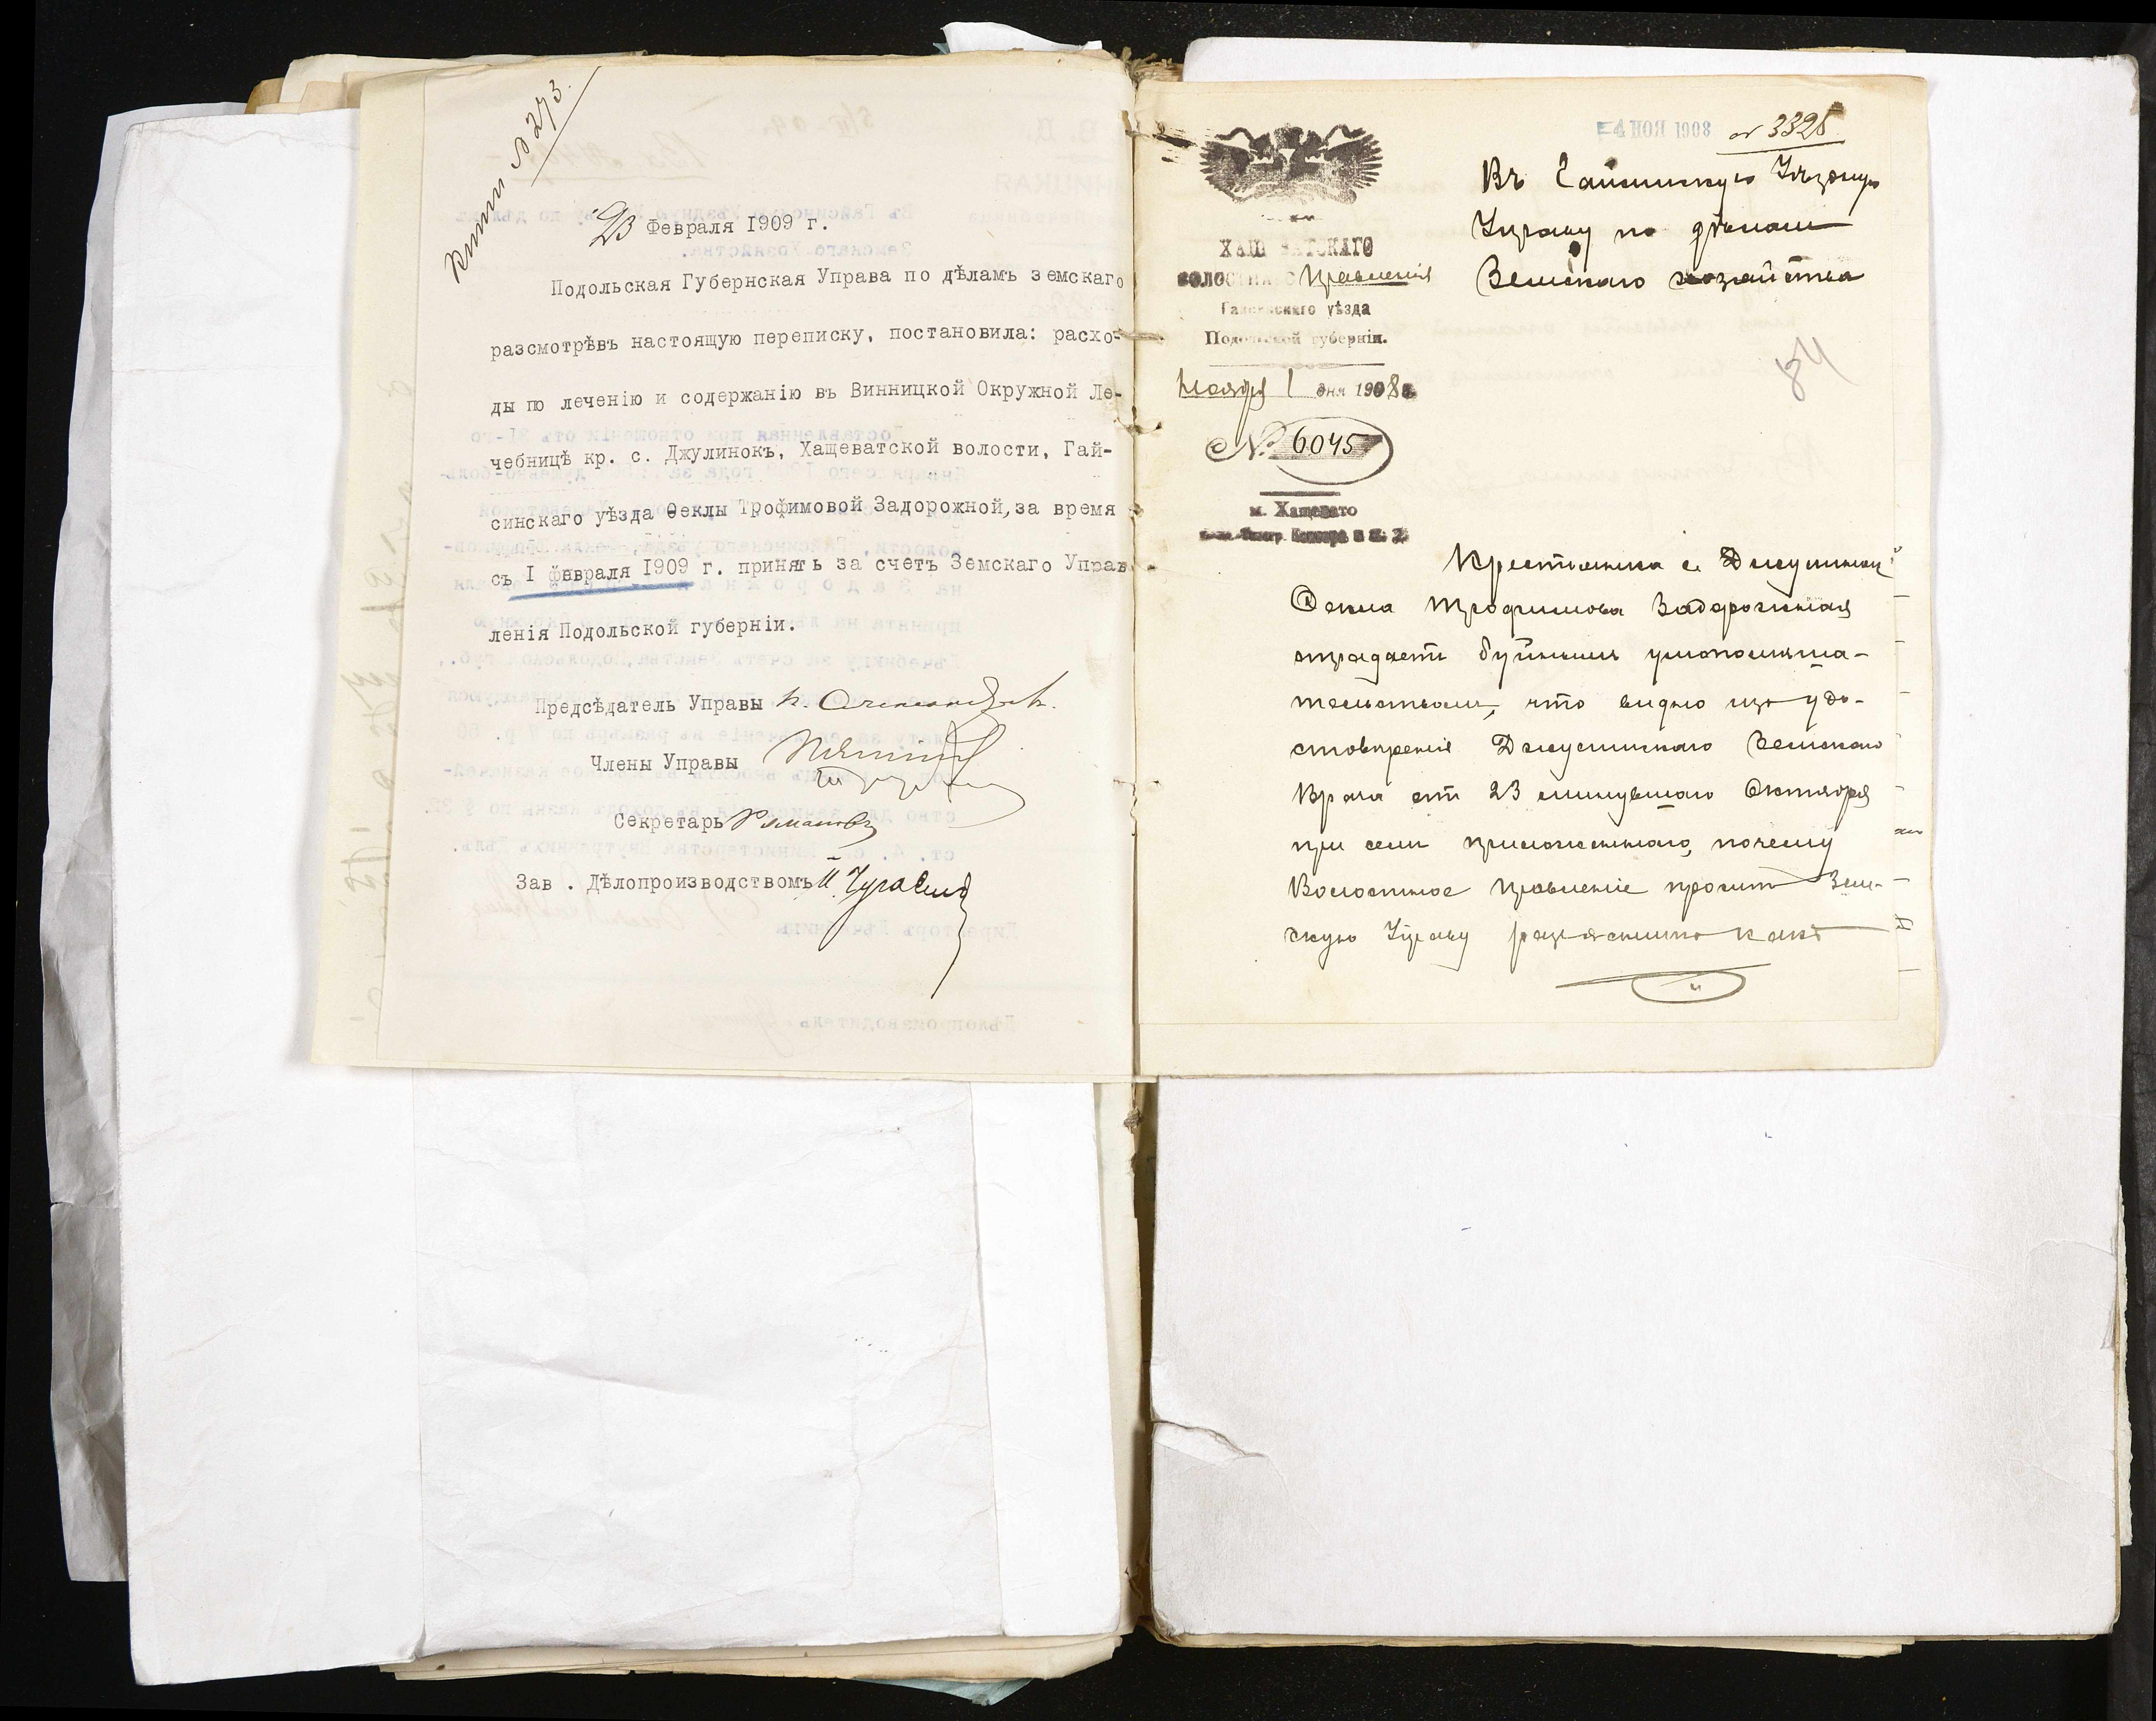 № 273.
23 Февраля 1909 г.
Подольская Губернская Управа по дѣламъ земскаго
разсмотрѣвъ настоящую переписку, постановила: расхо-
ды по леченію и содержанію въ Винницкой Окружной Ле-
чебницѣ кр. с. Джулинокъ, Хащеватской волости, Гай-
синскаго уѣзда Ѳеклы Трофимовой Задорожной, за время
съ I февраля I909 г. принять за счетъ Земскаго Управ
ленія Подольской губерніи.
Предсѣдатель Управы
Члены Управы
Секретарь Романовъ
Зав. Дѣлопроизводствомъ
4 НОЯ 1908 № 3328
Въ Гайсинскую Уѣздную
Управу по дѣламъ
Земскаго хозяйства
ХАЩЕВАТСКАГО
ВОЛОСТНАГО Правленія
Гайсинскаго уѣзда
Подольской губерніи.
Ноября 1 дня 1908 г.
№ 6045
м. Хащевато
84
Крестьянка с. Джулинки
Ѳекла Трофимова Задорожная
страдаетъ буйнымъ умопомѣша-
тельствомъ, что видно изъ удо-
стовѣренія Джулинскаго Земскаго
Врача отъ 23 минувшаго Октября
при семъ приложеннаго, почему
Волостное Правленіе проситъ Зем-
скую Управу разъяснить какъ